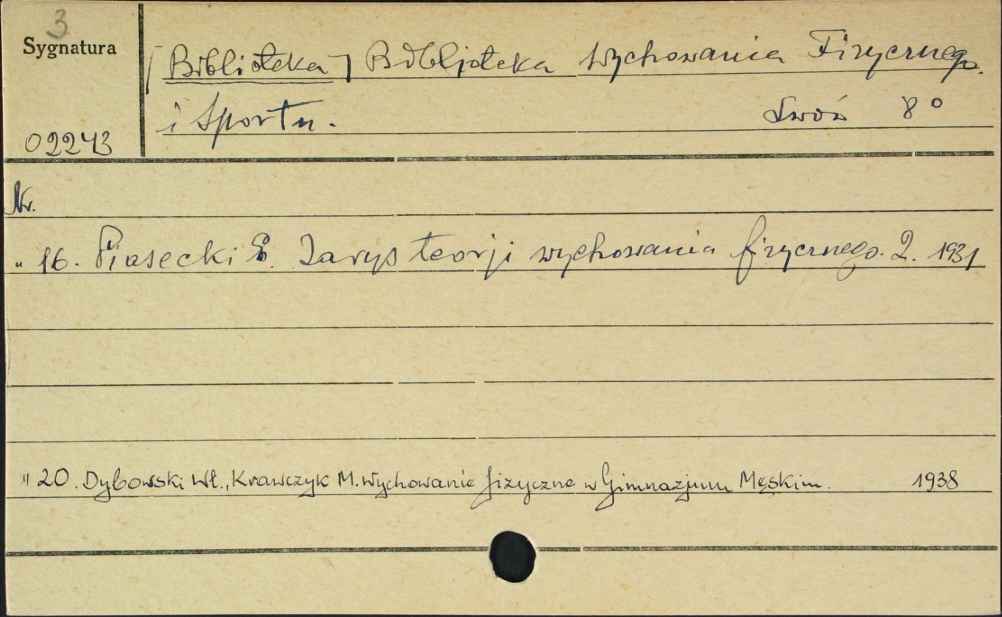 3
Sygnatura
[Biblioteka] Bibljoteka Wychowania Fizycznego
i Sportu. Lwów 8°
02243
Nr.
" 16. Piasecki E. Zarys teorji wychowania fizycznego. 2. 1931
" 20. Dybowski Wł., Krawczyk M. Wychowanie fizyczne w Gimnazjum Męskim. 1938